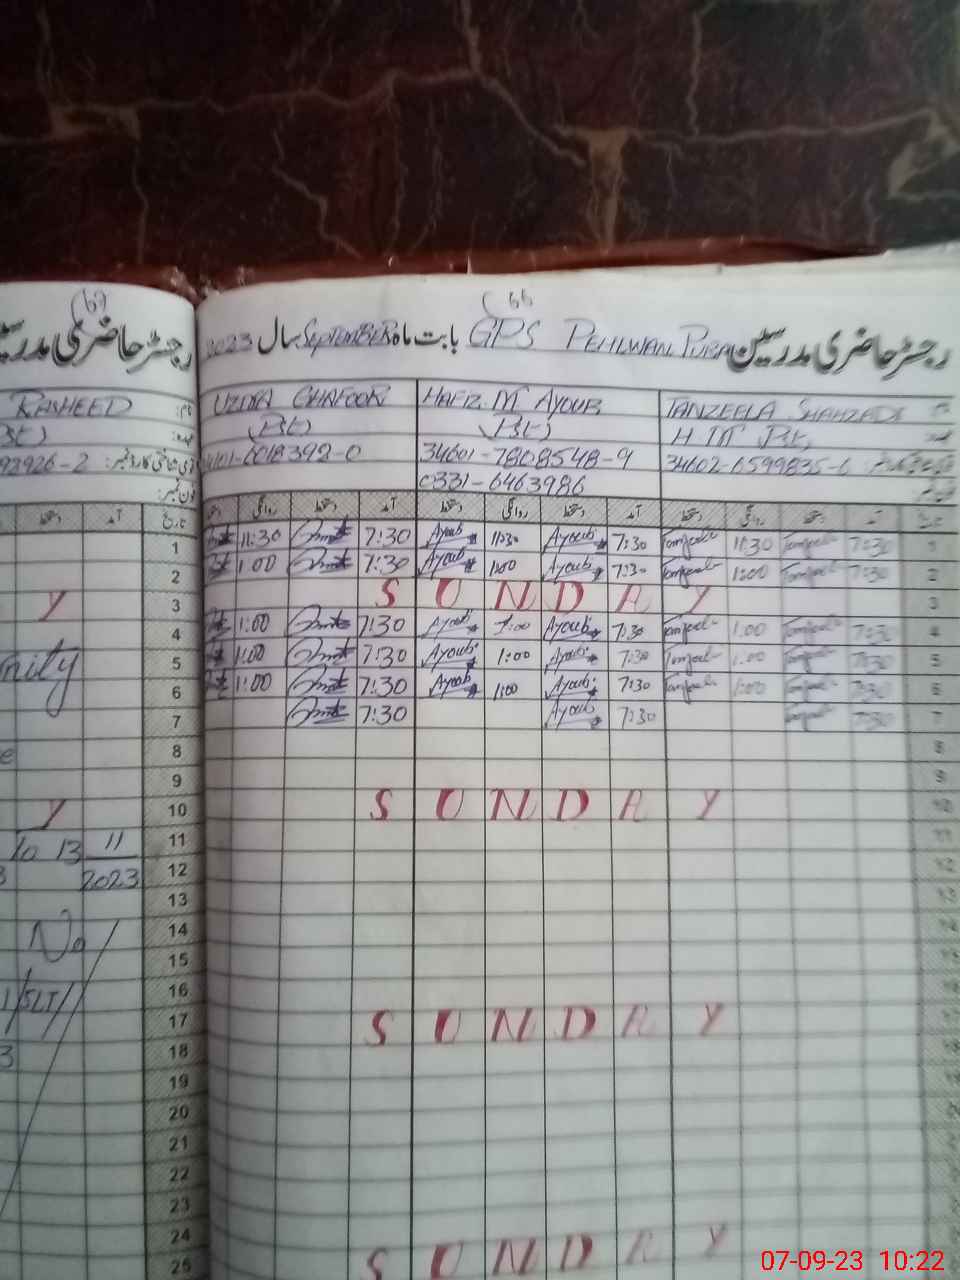 67
66
رجسٹر حاضری مدرسین
رجسٹر حاضری مدرسین GPS PEHLWAN PURA بابت ماہ SEPTEMBER سال 2023
RASHEED نام:
UZMA GHAFOOR HAFIZ M AYOUB TANZEELA SHAHZADI
عہدہ:
(Bt) (Bt) H M Bt,
92926-2 قومی شناختی کارڈ نمبر:
6018392-0 34601-7808548-9 34602-6599835-6
فون نمبر:
0331-6463986
دستخط آمد تاریخ
روانگی دستخط آمد دستخط روانگی دستخط آمد دستخط روانگی دستخط آمد تاریخ
1 11:30 7:30 Ayoub 11:30 Ayoub 7:30 11:30 7:30 1
2 1:00 7:30 Ayoub 1:00 Ayoub 7:30 1:00 7:30 2
Y 3 S U N D A Y 3
4 1:00 7:30 Ayoub 1:00 Ayoub 7:30 1:00 7:30 4
5 1:00 7:30 Ayoub 1:00 Ayoub 7:30 1:00 7:30 5
6 1:00 7:30 Ayoub 1:00 Ayoub 7:30 1:00 7:30 6
7 7:30 Ayoub 7:30 7:30 7
8 8
9 9
Y 10 S U N D A Y 10
to 13 11 11 11
2023 12 12
13 13
No 14 14
15 15
/SLT/ 16 16
17 S U N D A Y
3 18 18
19 19
20 20
21
22 22
23 23
24 S U N D A Y
25
07-09-23 10:22